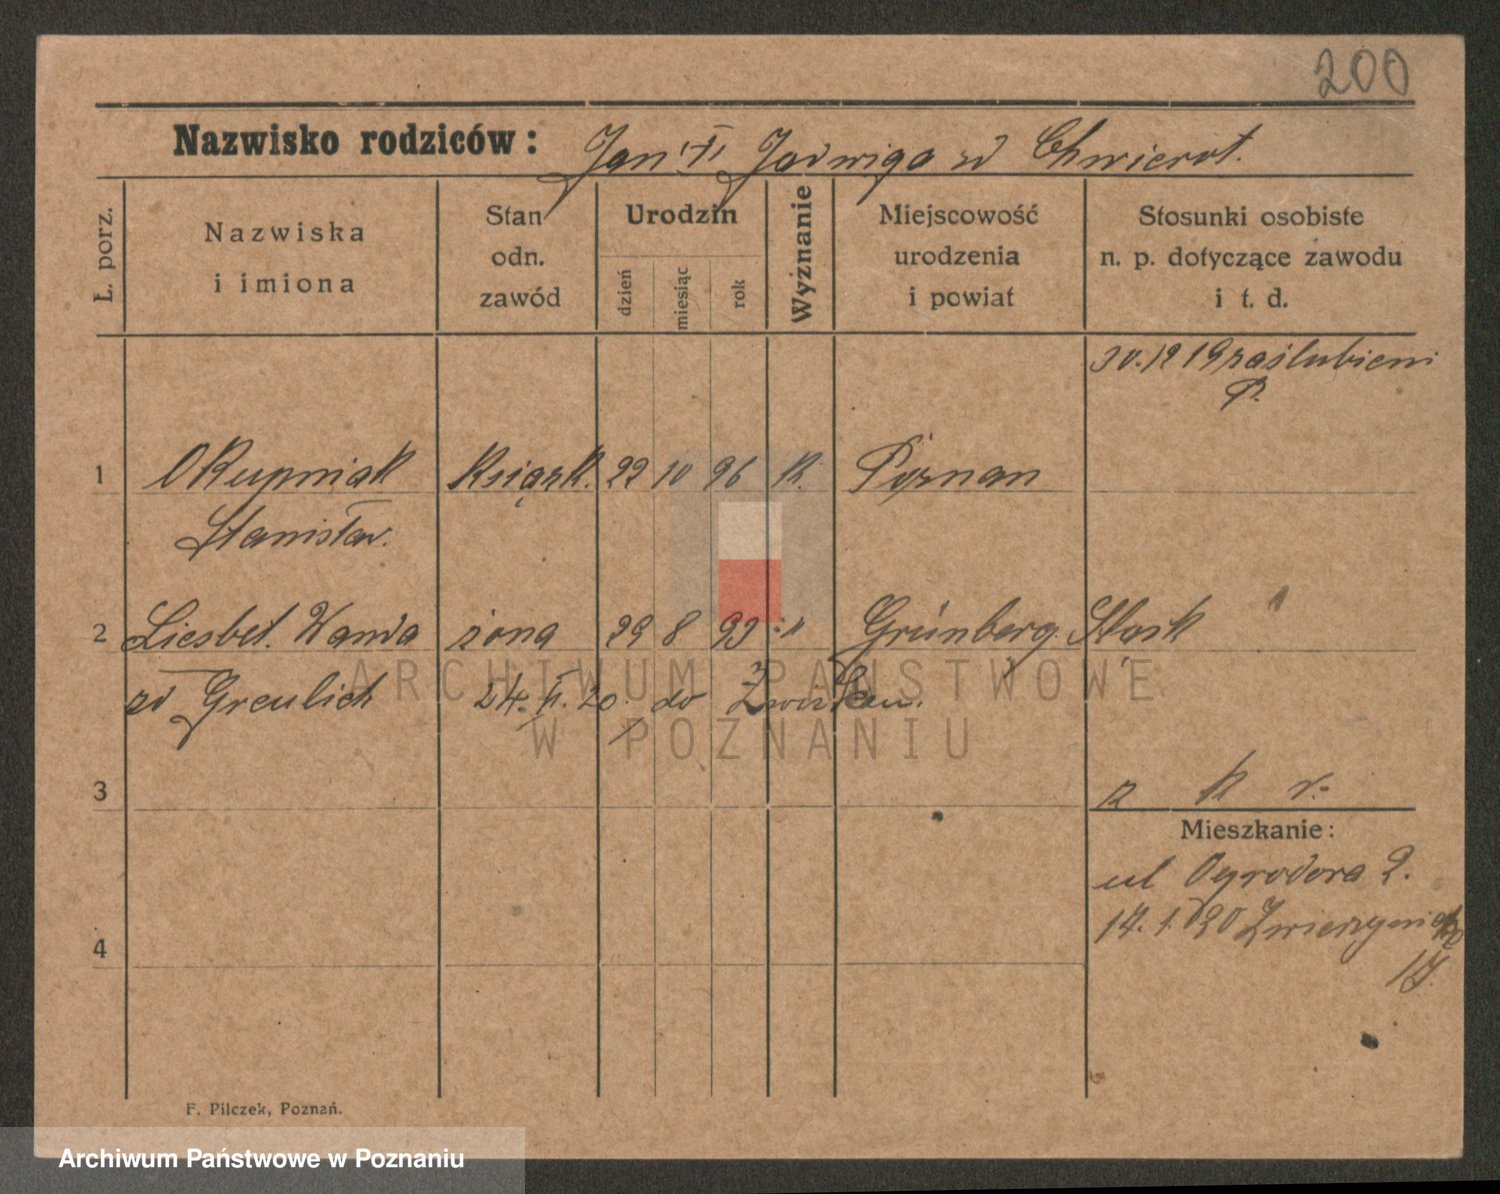 200
Nazwisko rodziców: Jan "I" Jadwiga zd Chwierot.
L. porz.
Nazwiska i imiona
Stan odn. zawód
Urodzin
dzień
miesiąc
rok
Wyznanie
Miejscowość urodzenia i powiat
Stosunki osobiste n. p. dotyczące zawodu i t. d.
30.12 19 zaślubieni
P.
1 Okupniak Książk. 22 10 96 k. Poznan
Stanisław.
2 Liesbet. Wanda żona 29 8 93 " Grünberg. Slask
zd Greulich 24. II. 20. do
3
z k r.
Mieszkanie:
ul Ogrodora 2.
14.1.020 Zwierzyniecka
17.
4
F. Pilczek, Poznań.
ARCHIWUM PAŃSTWOWE
W POZNANIU
Archiwum Państwowe w Poznaniu